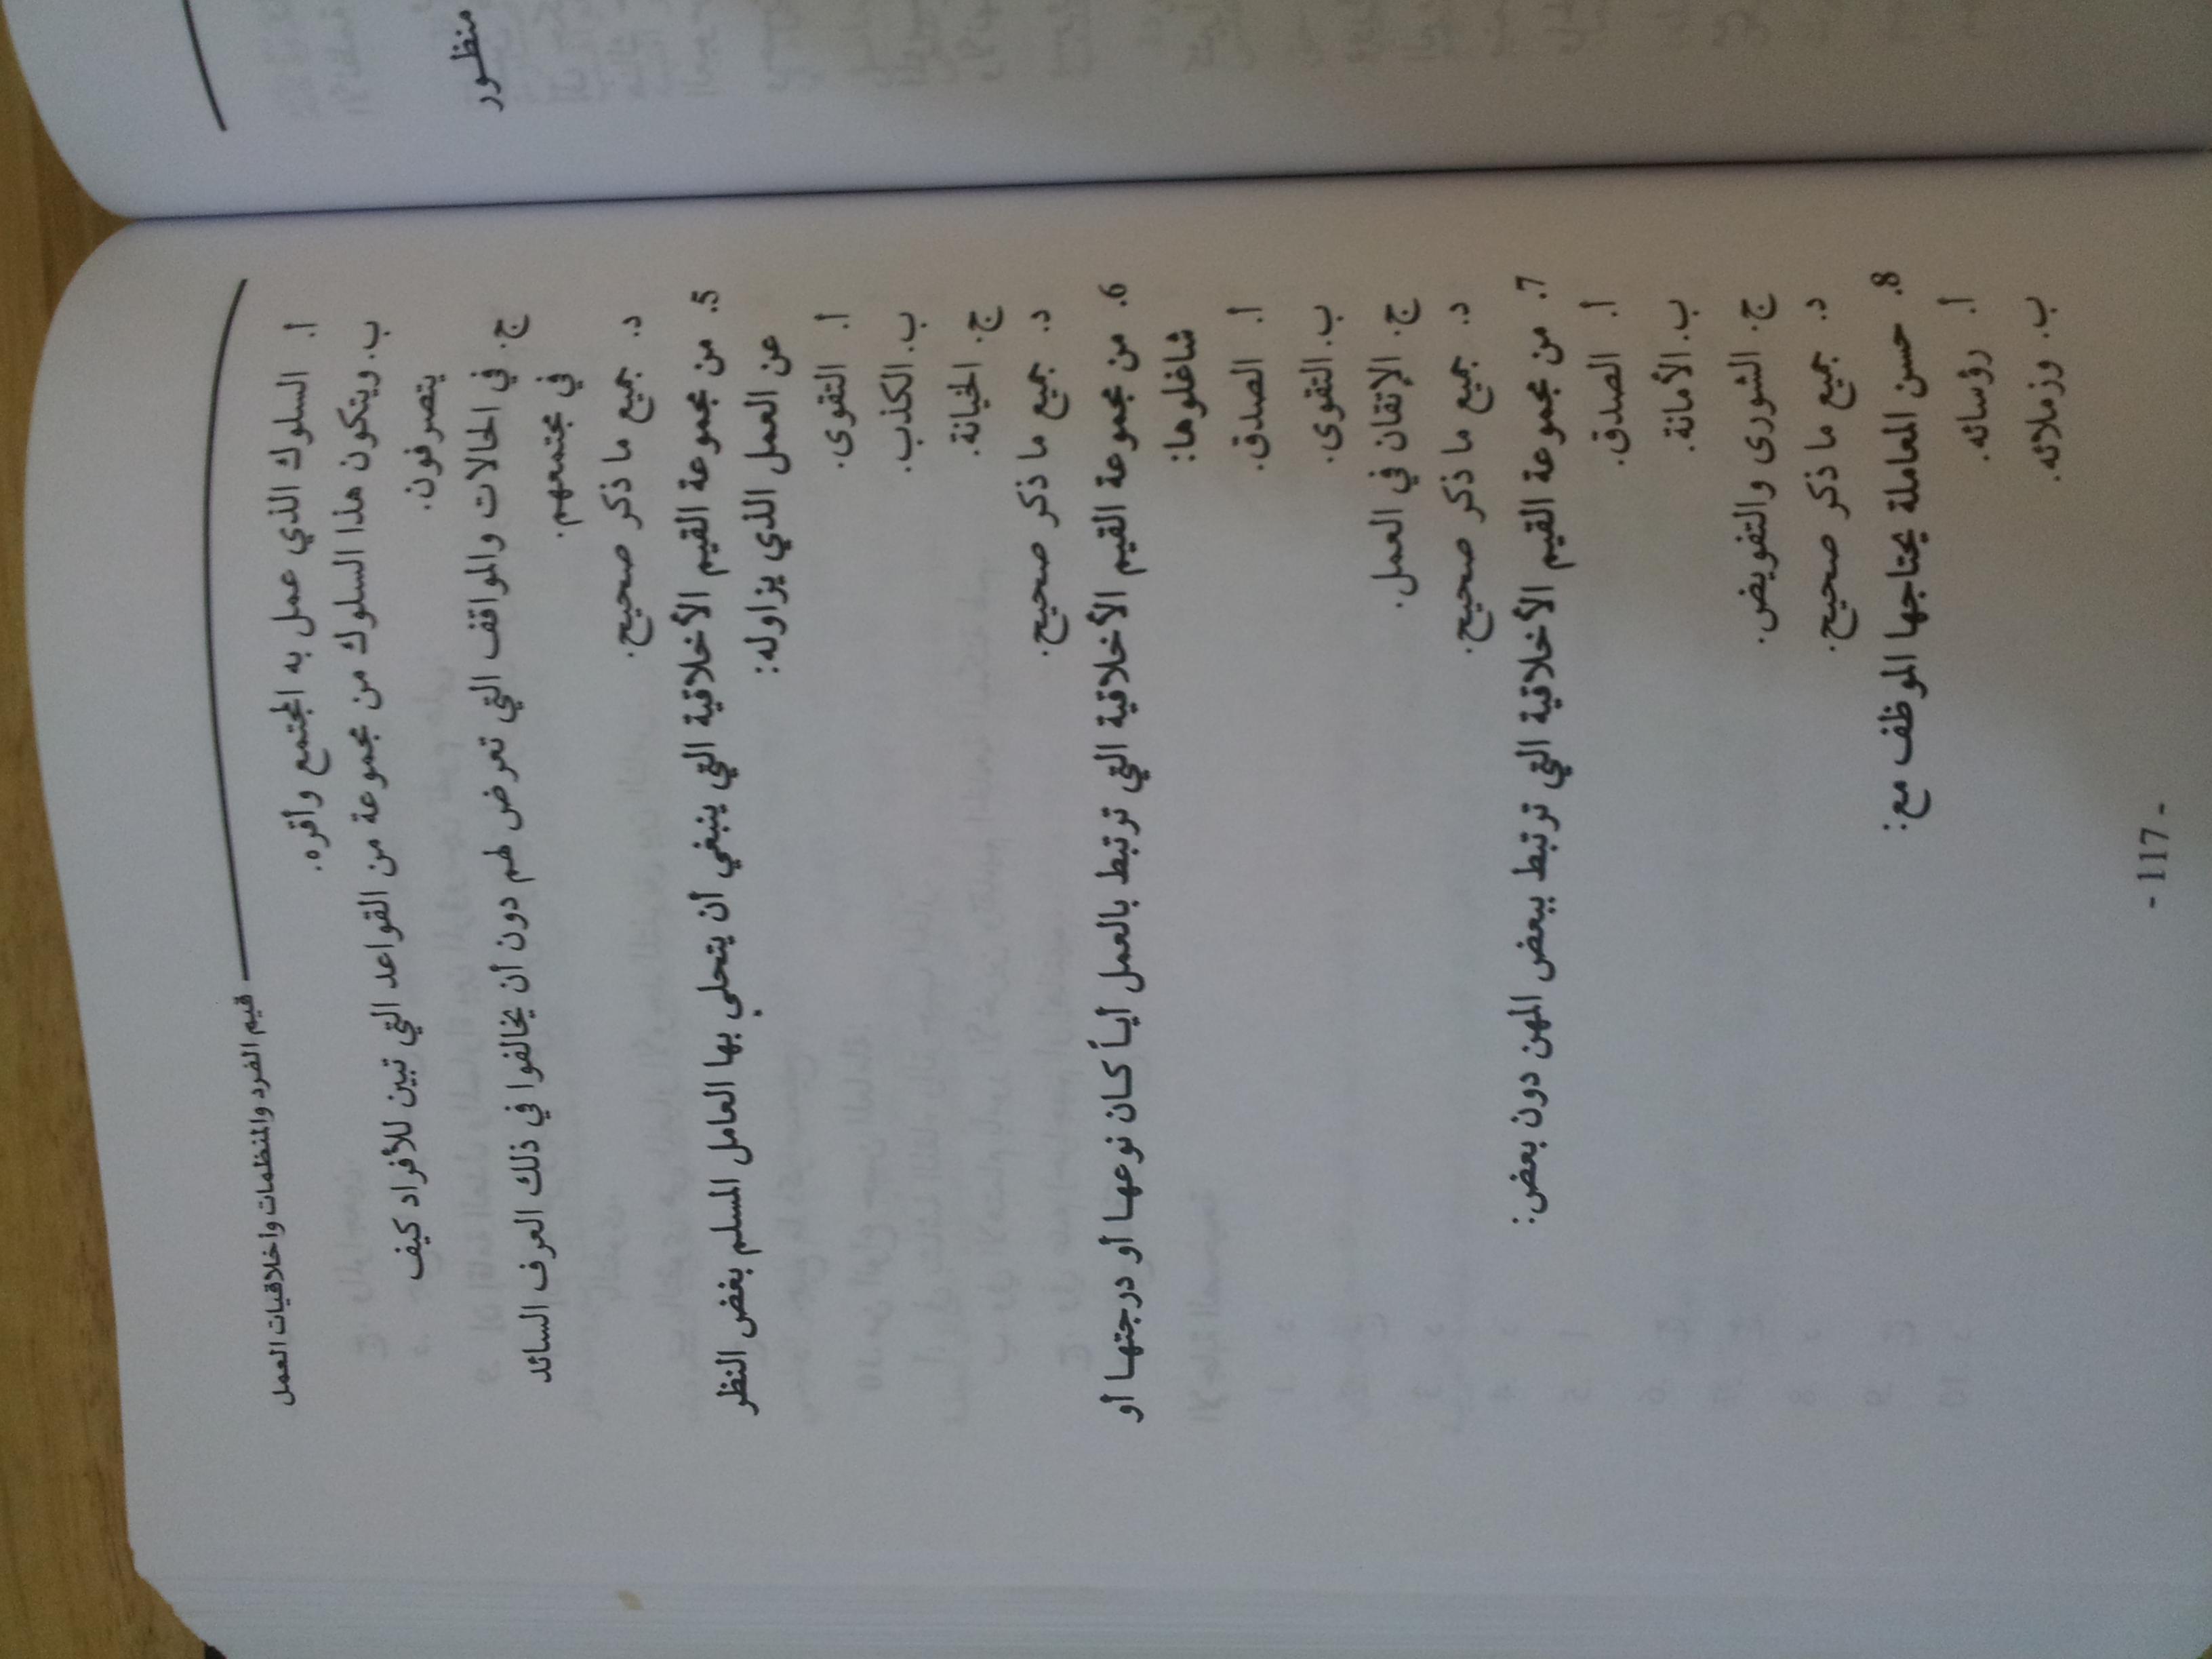 قيم الفرد والمنظمات وأخلاقيات العمل
أ. السلوك الذي عمل به المجتمع وأقره.
ب. ويتكون هذا السلوك من مجموعة من القواعد التي تبين للأفراد كيف
يتصرفون.
ج. في الحالات والمواقف التي تعرض لهم دون أن يخالفوا في ذلك العرف السائد
في مجتمعهم.
د. جميع ما ذكر صحيح.
5. من مجموعة القيم الأخلاقية التي ينبغي أن يتحلى بها العامل المسلم بغض النظر
عن العمل الذي يزاوله:
أ. التقوى.
ب. الكذب.
ج. الخيانة.
د. جميع ما ذكر صحيح.
6. من مجموعة القيم الأخلاقية التي ترتبط بالعمل أياً كان نوعها أو درجتها أو
شاغلوها:
أ. الصدق.
ب. التقوى.
ج. الإتقان في العمل.
د. جميع ما ذكر صحيح.
7. من مجموعة القيم الأخلاقية التي ترتبط ببعض المهن دون بعض:
أ. الصدق.
ب. الأمانة.
ج. الشورى والتفويض.
د. جميع ما ذكر صحيح.
8. حسن المعاملة يحتاجها الموظف مع:
أ. رؤسائه.
ب. وزملائه.
- 117 -
منظور